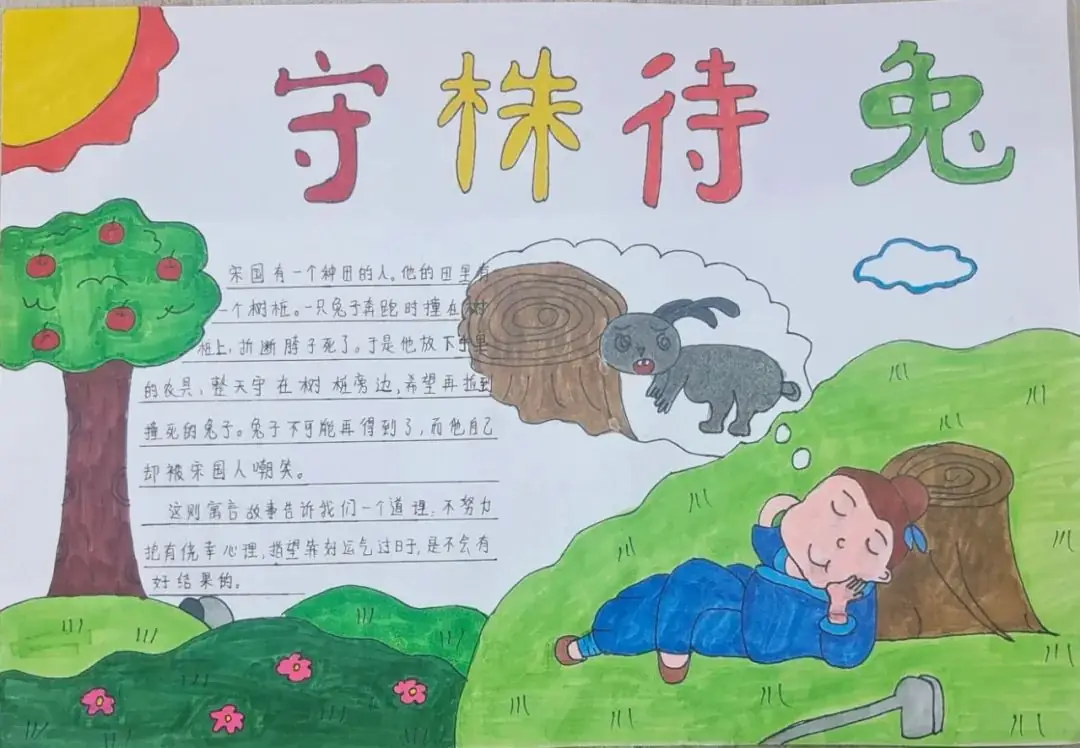 守株待兔
宋国有一个种田的人。他的田里有
一个树桩。一只兔子奔跑时撞在树
桩上，折断脖子死了。于是他放下手里
的农具，整天守在树桩旁边，希望再捡到
撞死的兔子。兔子不可能再得到了，而他自己
却被宋国人嘲笑。
这则寓言故事告诉我们一个道理：不努力
抱有侥幸心理，指望靠好运气过日子，是不会有
好结果的。